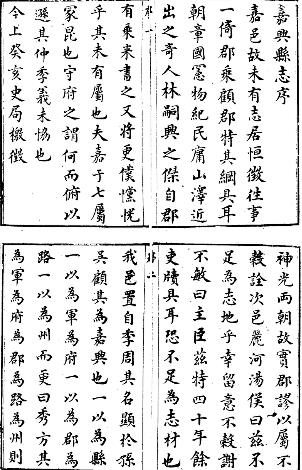 嘉興縣志序
嘉邑故未有志居恒徵往事
一倚郡乘顧郡特其綱具耳
朝章國憲物紀民庸山澤近
出之奇人林嗣興之傑自郡
有乘来書之又将更僕戃怳
乎其未有屬也夫嘉于七屬
家昆也守府之謂何而俯以
遜其仲季義未恊也
今上癸亥史局檄徵
神光兩朝故實郡謬以屬不
穀詮次邑麗河湯侯曰茲不
足為志地乎幸留意不穀謝
不敏曰主臣茲特四十年餘
吏牘具耳恐不足為志材也
我邑置自李周其名顯扵孫
吳顧其為嘉興也一以為縣
一以為軍為府一以為郡為
路一以為州而更曰秀方其
為軍為府為郡為路為州則